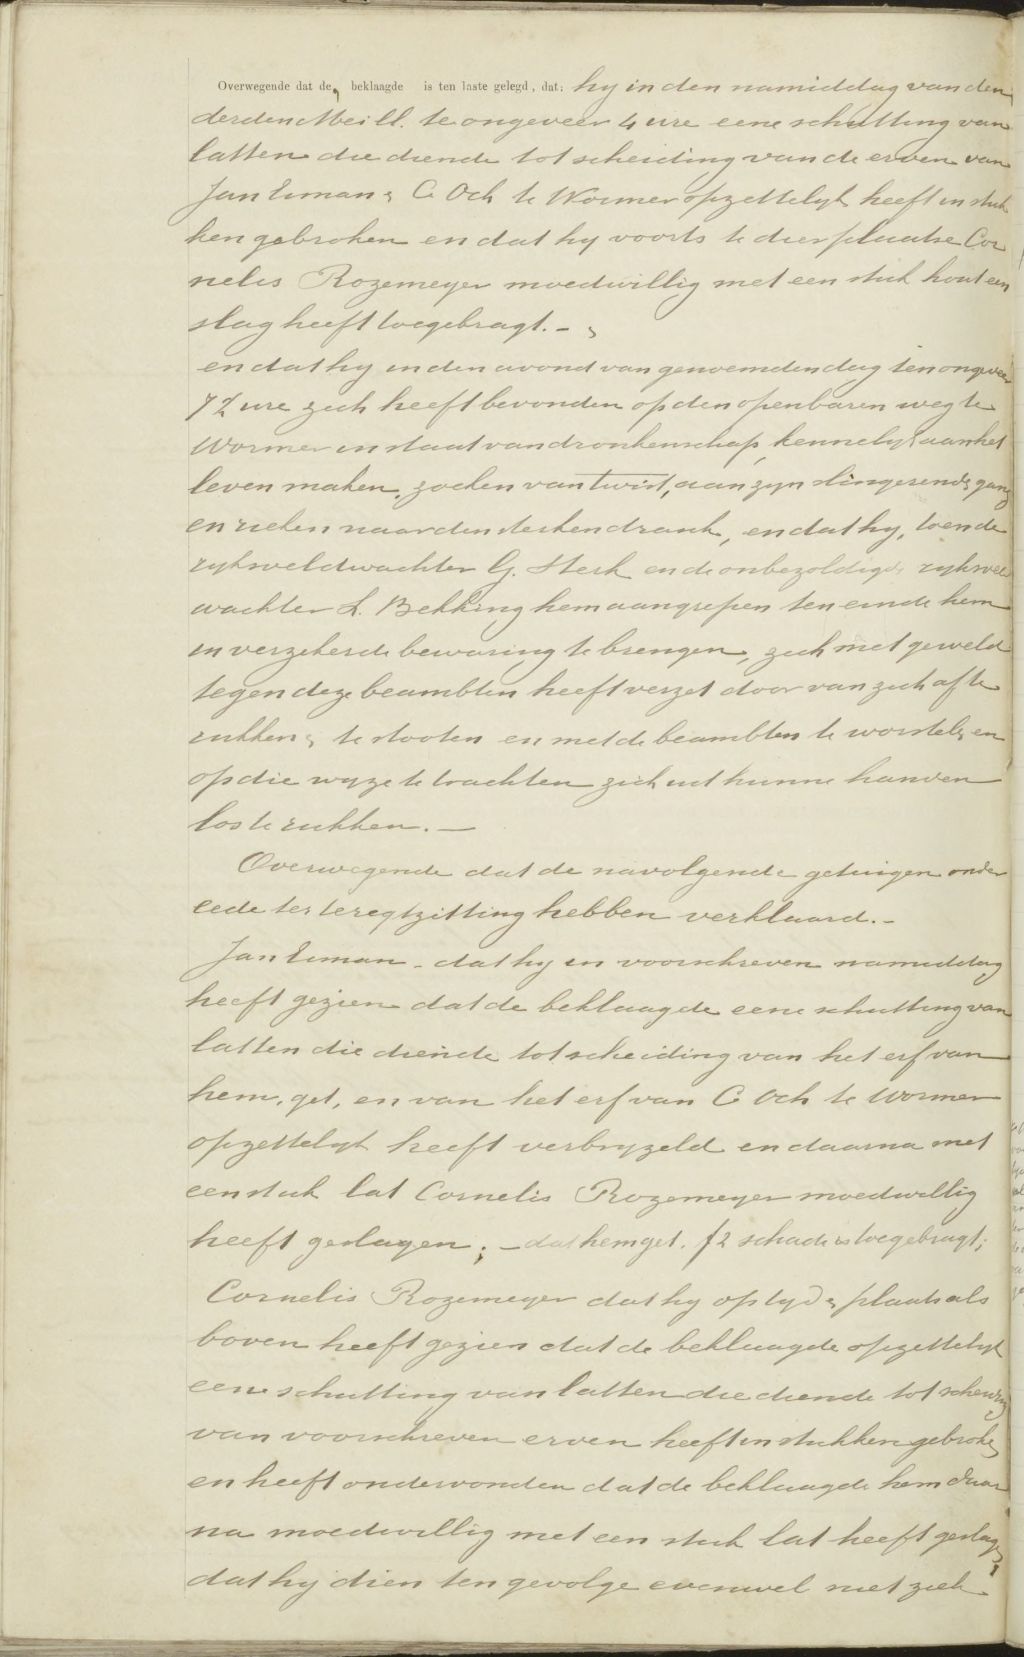 Overwegende dat de beklaagde is ten laste gelegd, dat: hy in den namiddag van den
derden Mei ll. te ongeveer 4 ure eene schutting van
latten die diende tot scheiding van de erven van
Jan Eman & C Och te Wormer opzettelyk heeft in stuk
ken gebroken en dat hy voorts te dier plaatse Cor
nelis Rozemeyer moedwillig met een stuk hout een
slag heeft toegebragt. - &
en dat hy in den avond van genoemden dag ten ongeveer
7½ ure zich heeft bevonden op den openbaren weg te
Wormer in staat van dronkenschap, kennelyk aan het
leven maken, zoeken van twist, aan zyn slingerende gang
en rieken naar den sterken drank, en dat hy, toen de
ryksveldwachter G. Sterk en de onbezoldigde ryksveld
wachter L. Bekking hem aangrepen ten einde hem
in verzekerde bewaring te brengen, zich met geweld
tegen deze beambten heeft verzet door van zich af te
rukken & te stooten en met de beambten te worstelen
op die wyze te trachten zich uit hunne handen
los te rukken. -
Overwegende dat de navolgende getuigen onder
eede ter teregtzitting hebben verklaard. -
Jan Eman - dat hy in voorschreven namiddag
heeft gezien dat de beklaagde eene schutting van
latten die diende tot scheiding van het erf van
hem, get, en van het erf van C Och te Wormer
opzettelyk heeft verbryzeld en daarna met
een stuk lat Cornelis Rozemeyer moedwillig
heeft geslagen; - dat hem get. f2 schade is toegebragt;
Cornelis Rozemeyer dat hy op tyd & plaats als
boven heeft gezien dat de beklaagde opzettelyk
eene schutting van latten die diende tot scheiding
van voorschreven erven heeft in stukken gebroken
en heeft ondervonden dat de beklaagde hem daar
na moedwillig met een stuk lat heeft geslagen,
dat hij dien ten gevolge evenwel niet ziek